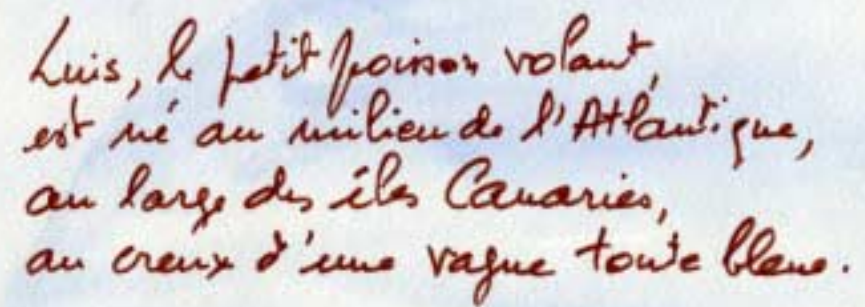 Luis, le petit poisson volant,
est né au milieu de l'Atlantique,
au large des îles Canaries,
au creux d'une vague toute bleue.